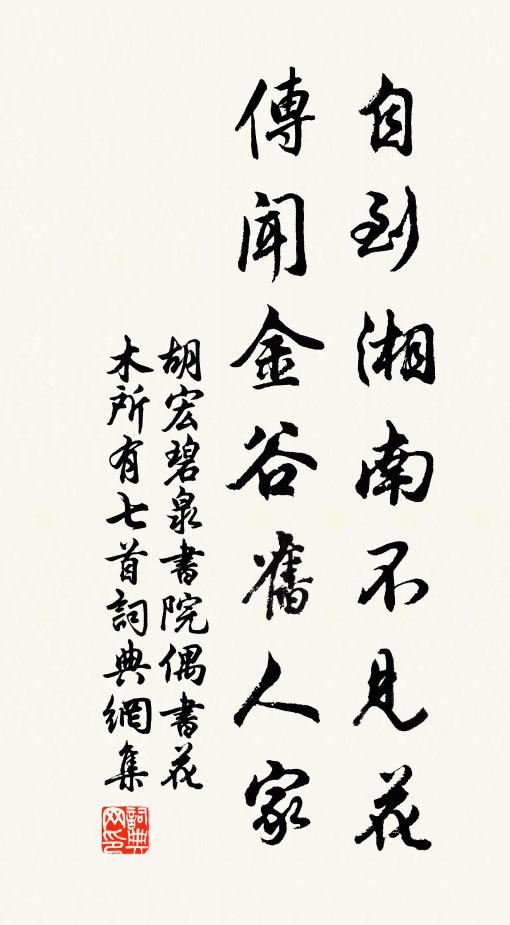 自到湘南不見花
傳聞金谷舊人家
胡宏碧泉書院偶書花
木所有七首詞典網集
詞典
网印